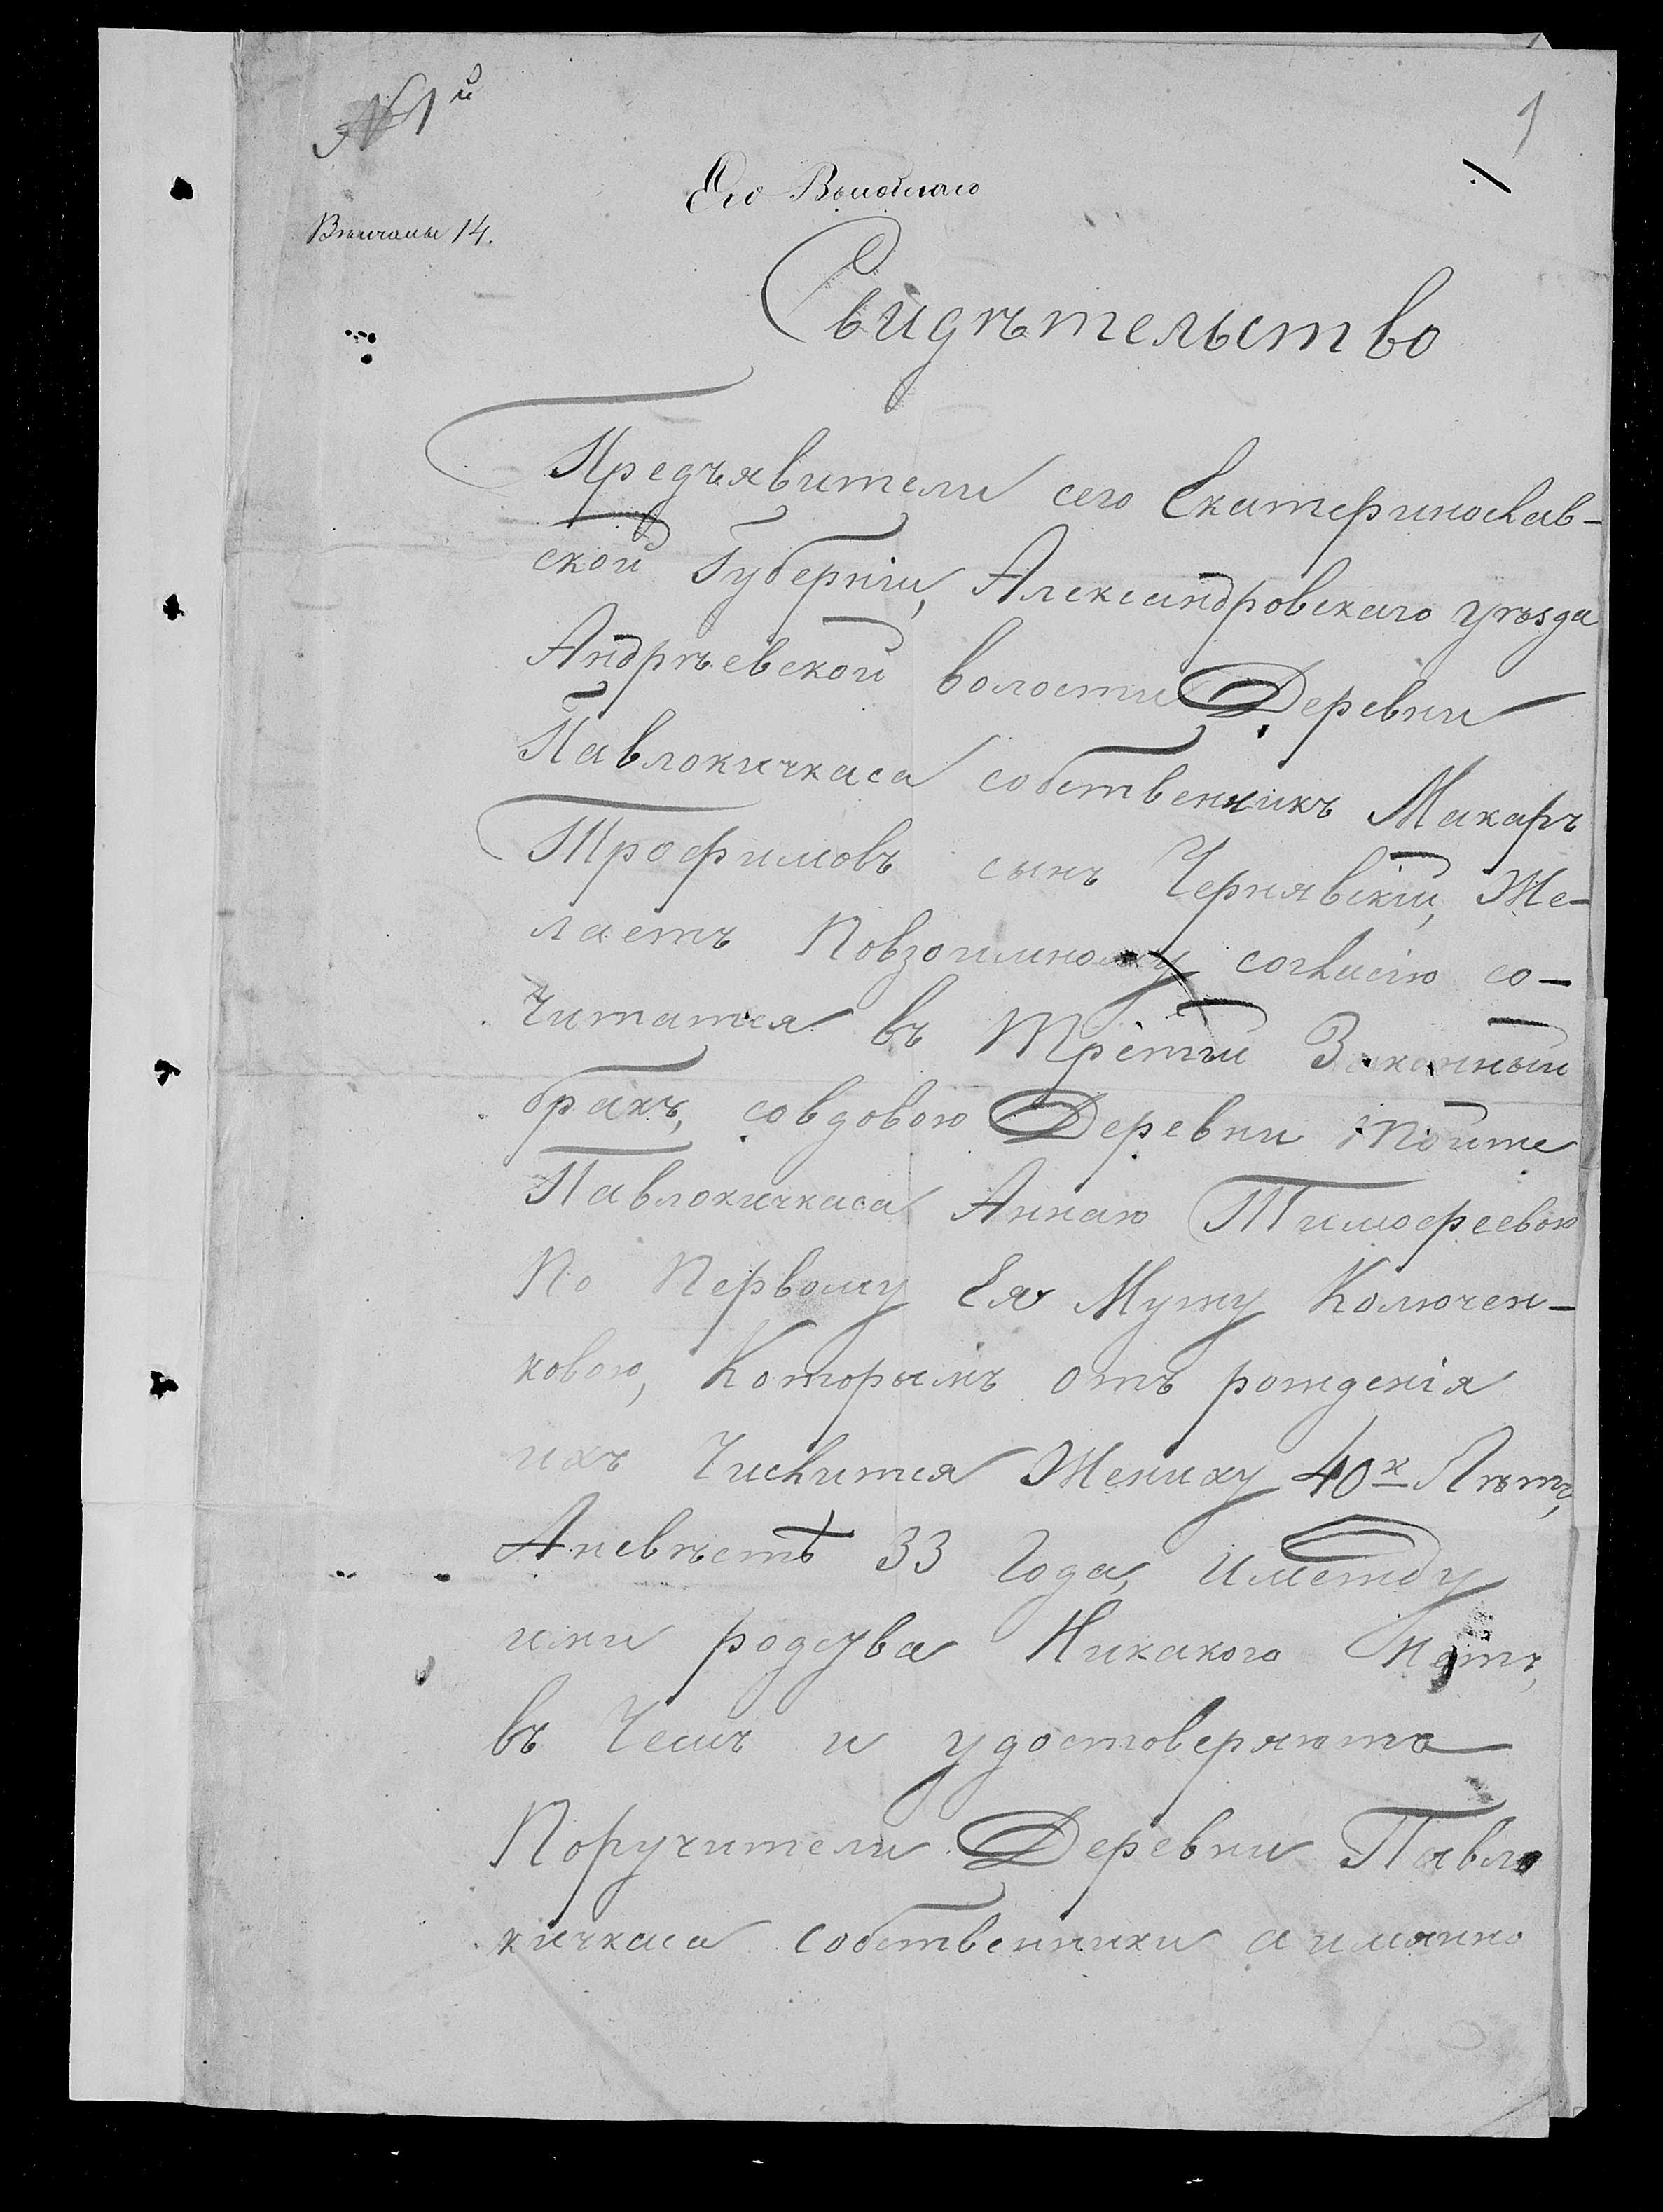 №1й
1
Его
Венчаны 14.
Свидѣтельство
Предъявители сего Екатеринослав-
ской Губерніи, Александровскаго уѣзда
Андрѣевской волости Деревни
Павлокичкаса собственникъ Макаръ
Трофимовъ сынъ Чернявскій, Же-
лаетъ Повзоимному согласію со-
читатся въ Третій Законный
бракъ, совдовою Деревни тойже
Павлокичкаса Анною Тимофеевою
По Первому Ея Мужу Колючен-
ковою, Которымъ отъ рожденія
ихъ Числится Жениху 40к Лѣтъ,
Аневѣстѣ 33 Года, Имежду
ими родства Никакого Нѣтъ,
въ Чемъ и удостоверяютъ
Поручители Деревни Павло
кичкаса собственники аимянно